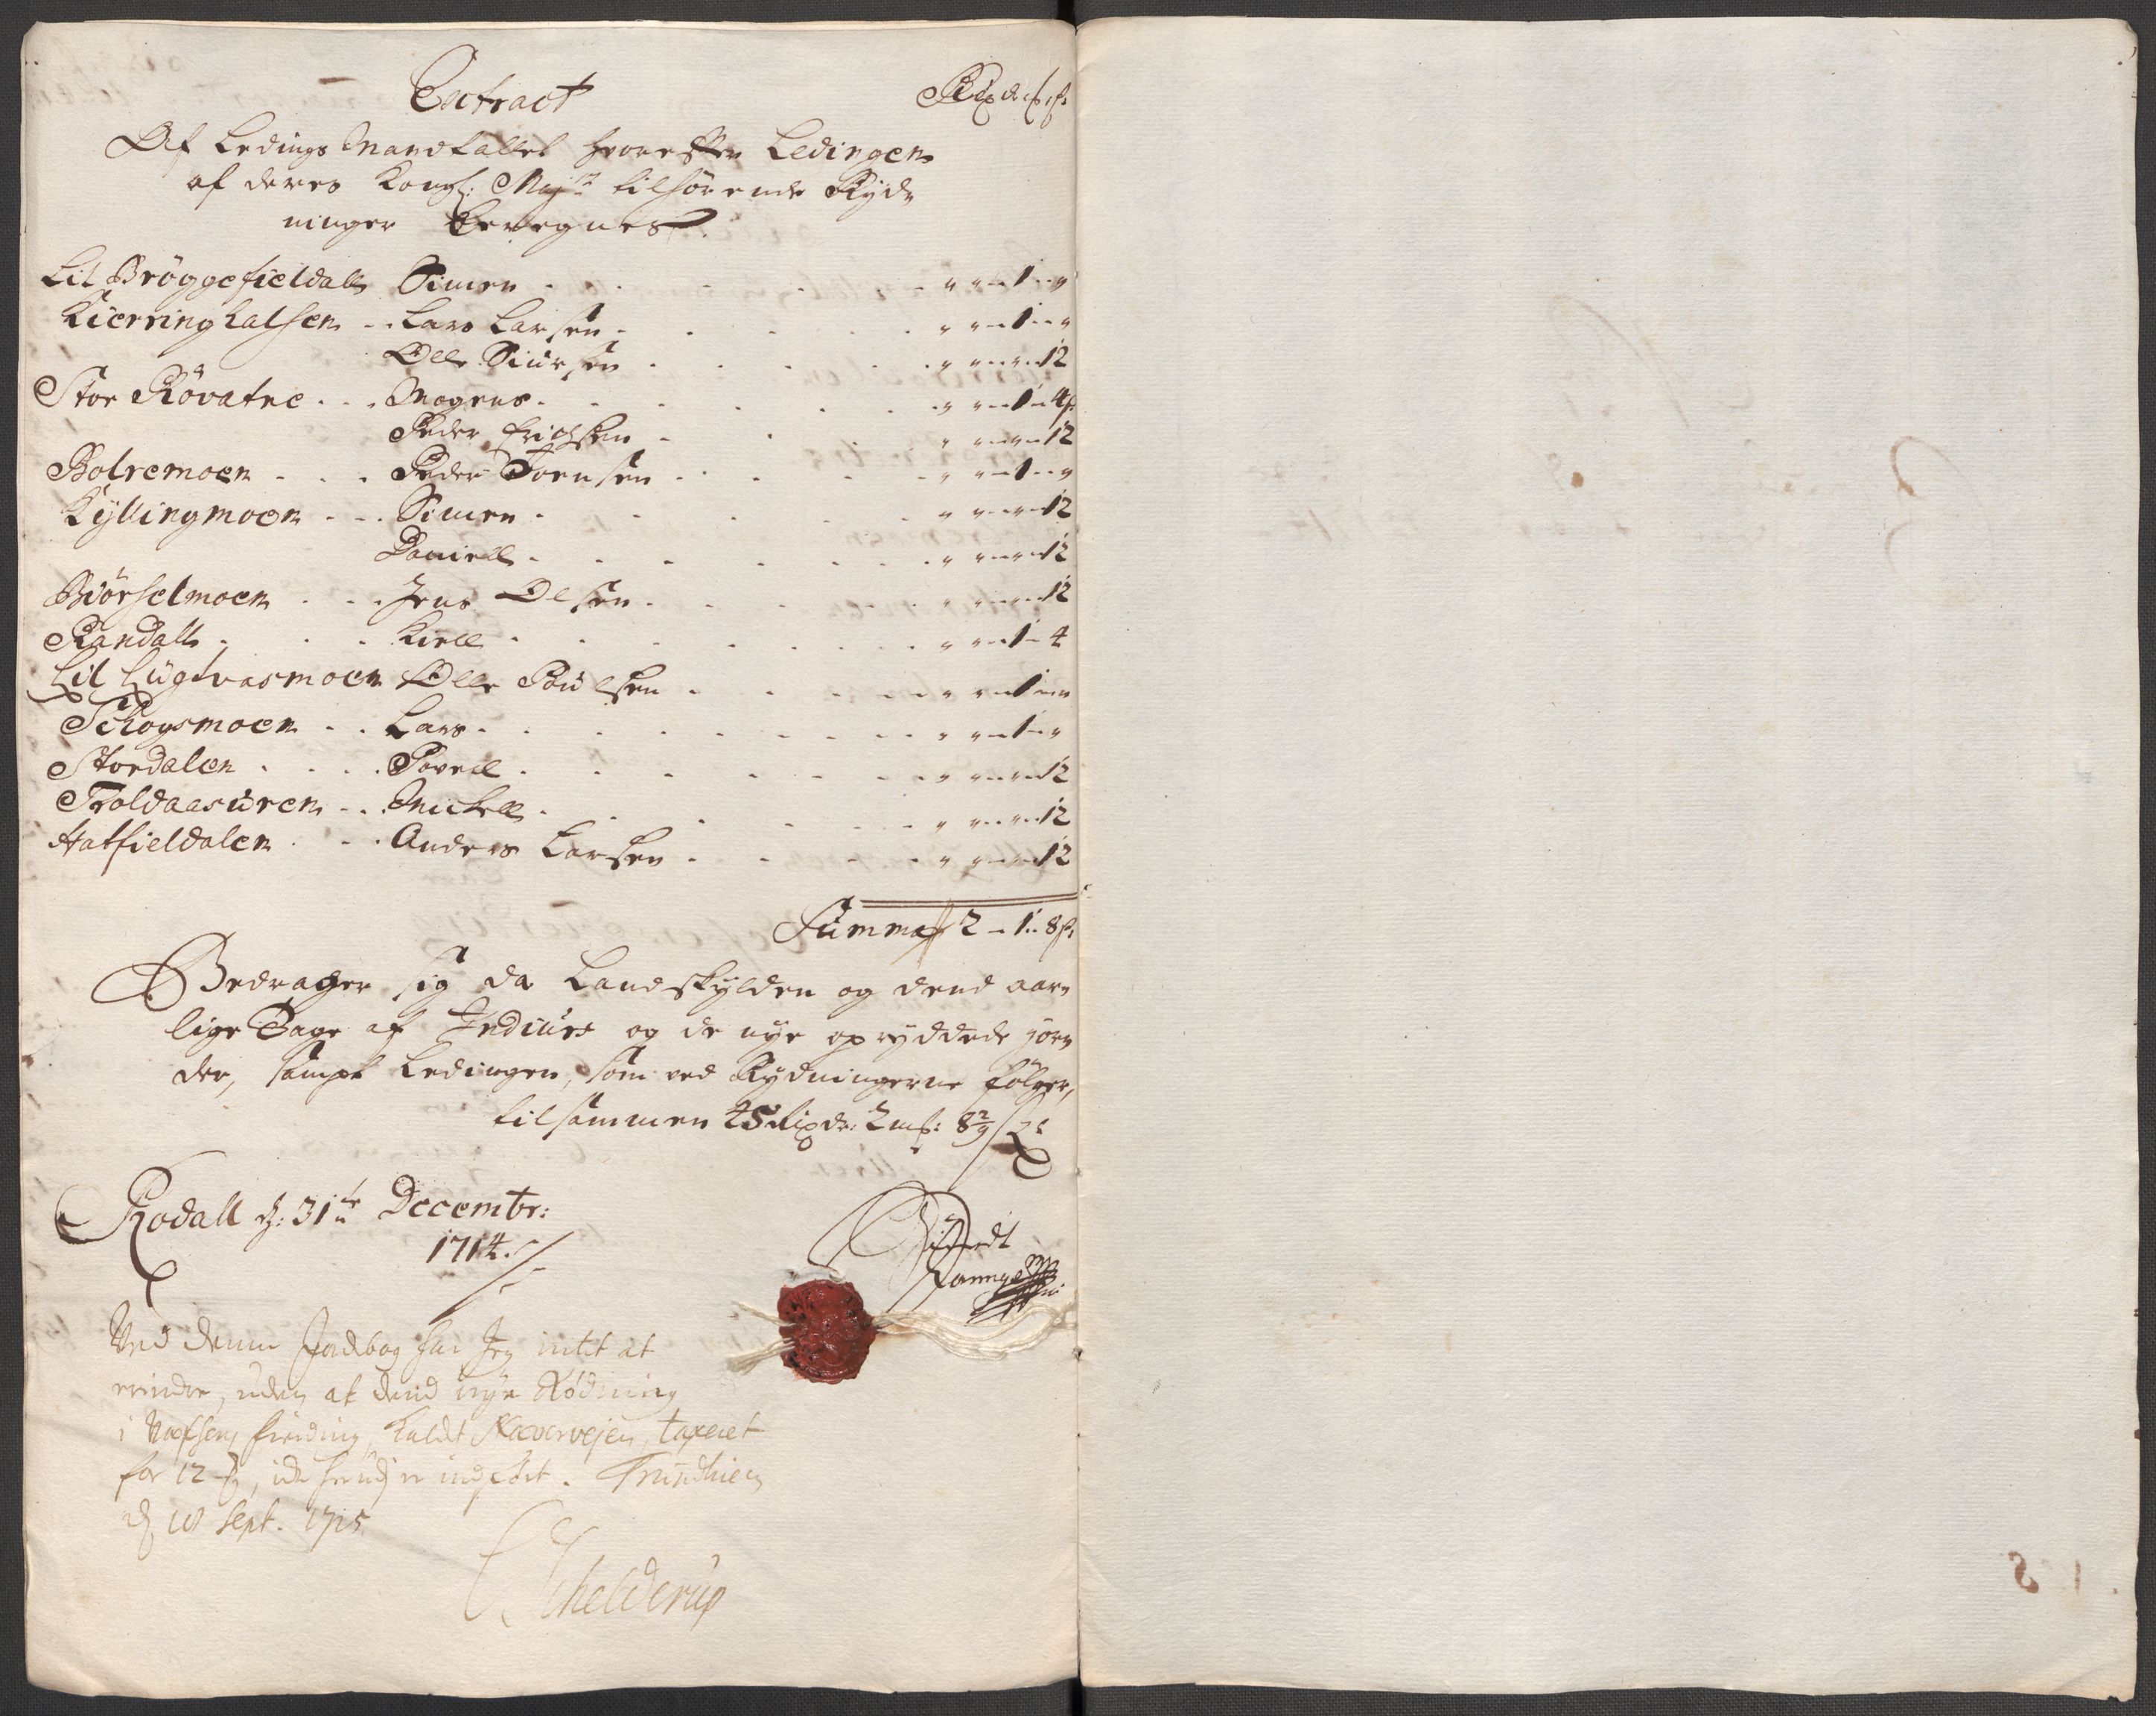 Extract
Rixdr. ß
Af Ledings Mandtallet hvorefter Ledingen
af deres Kongl: Majts tilhørende Ryd-
ninger beregnes.
Lil Brøggefieldall Simen . . . . . " " – 1 – "
Kierringhalsen . . Lars Larsen . . . . " " – 1 – "
Olle Siursen . . . . " " – " – 12
Stor Røvatne . . . Mogens . . . . " " – 1 – 4 ß
Peder Erichsen . . . " " – " – 12
Bolremoen . . . Peder Joensen . . . . " " – 1 – "
Kyllingmoen . . . Simen . . . . " " – " – 12
Daniell . . . . " " – " – 12
Biørselmoen . . . Jens Olsen . . . . " " – " – 12
Randall . . . . Kiell . . . . " " – 1 – 4
Lil Lugtvasmoen Olle Poulsen . . . . " " – 1 – "
Schogsmoen . . Lars . . . . " " – 1 – "
Stordalen . . . . Povell . . . . " " – " – 12
Troldaasuren . . Michell . . . . " " – " – 12
Hatfieldalen . . . Anders Larsen . . . . " " – " – 12
Summa 2 – 1 – 8 ß
Bedrager sig da Landskylden og dend aar-
lige Tage af Indiurs og de nye opryddede jor-
der, sampt Ledingen, som ved Rydningerne følger,
tilsammen 45 Rixdr: 2 mk: 8 2/9 ß
Rodall d: 31te Decembr:
1714.
Ved denne Jordbog har Jeg intet at
erindre, uden at dend nye Rødning
i Vefsen fierding, kaldt Næverveien, taxeret
for 12 ß, icke herudj er indført. Trundhiem
d 18 Sept. 1715.
Schelderup